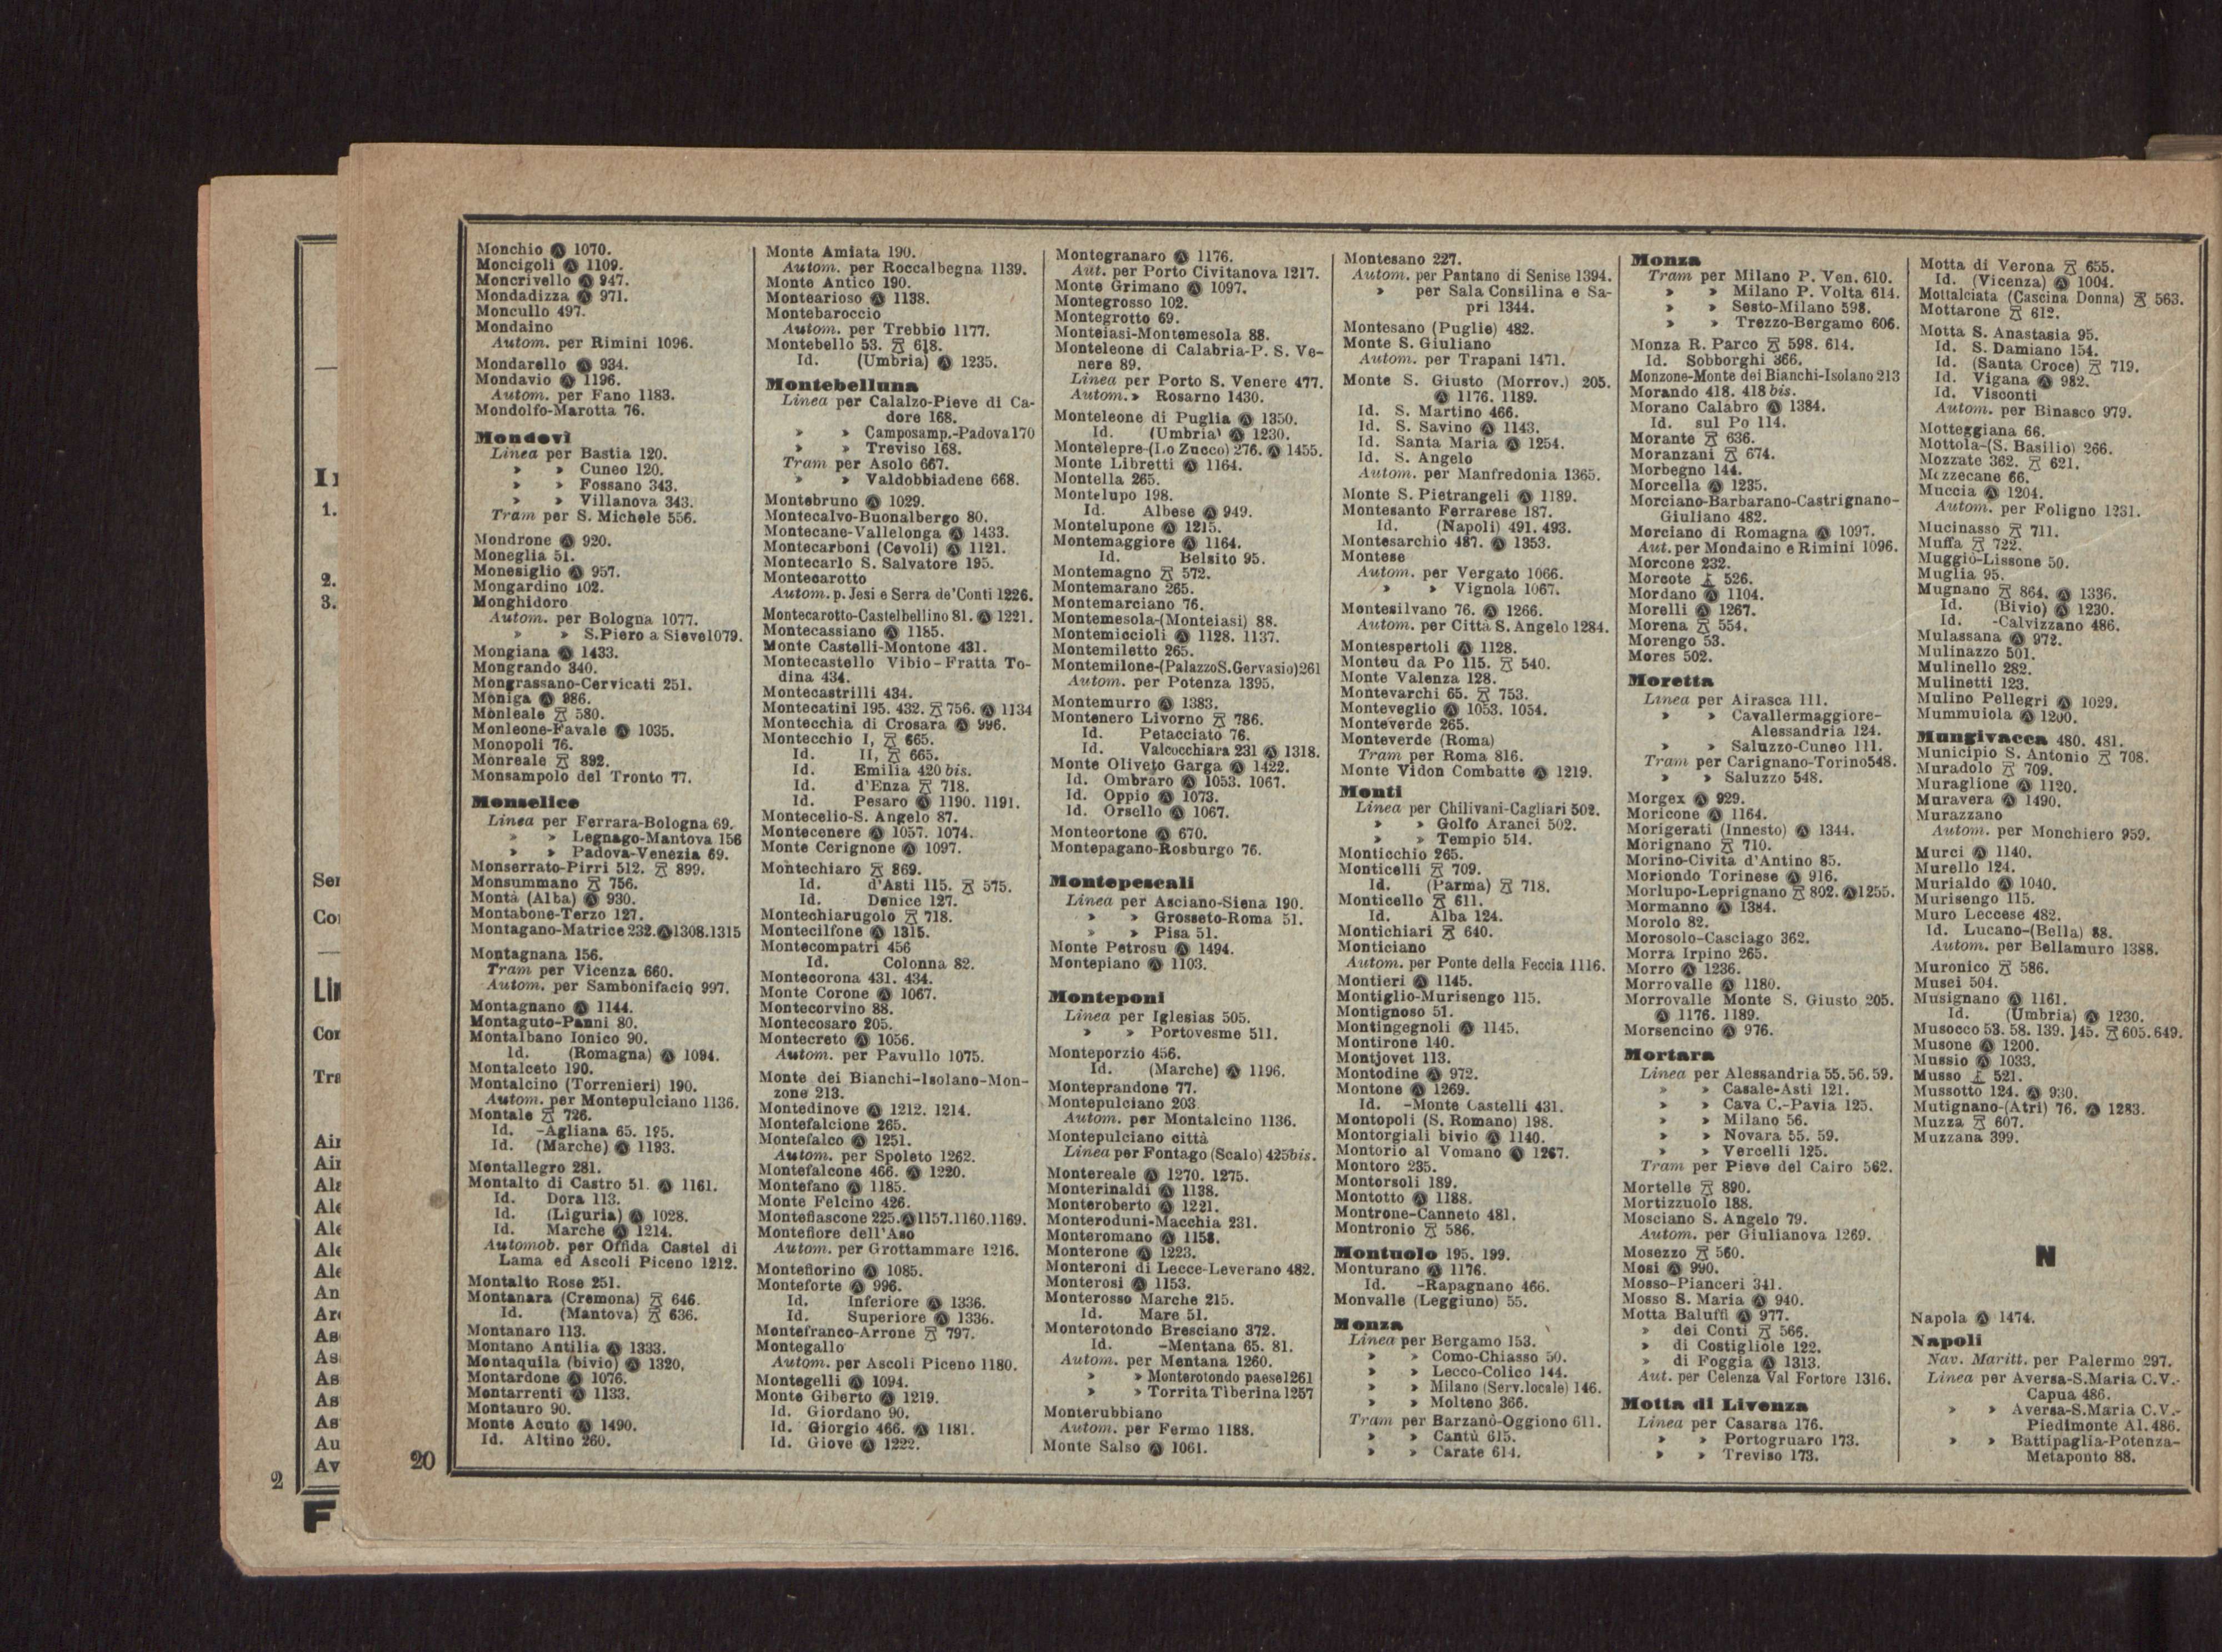 Monchio Ⓐ 1070.
Moncigoli Ⓐ 1109.
Moncrivello Ⓐ 947.
Mondadizza Ⓐ 971.
Moncullo 497.
Mondaino
Autom. per Rimini 1096.
Mondarello Ⓐ 934.
Mondavio Ⓐ 1196.
Autom. per Fano 1183.
Mondolfo-Marotta 76.
Mondovì
Linea per Bastia 120.
» » Cuneo 120.
» » Fossano 343.
» » Villanova 343.
Tram per S. Michele 556.
Mondrone Ⓐ 920.
Moneglia 51.
Monesiglio Ⓐ 957.
Mongardino 102.
Monghidoro
Autom. per Bologna 1077.
» » S.Piero a Sieve1079.
Mongiana Ⓐ 1433.
Mongrando 340.
Mongrassano-Cervicati 251.
Moniga Ⓐ 986.
Monleale 580.
Monleone-Favale Ⓐ 1035.
Monopoli 76.
Monreale 892.
Monsampolo del Tronto 77.
Monselice
Linea per Ferrara-Bologna 69.
» » Legnago-Mantova 156
» » Padova-Venezia 69.
Monserrato-Pirri 512. 899.
Monsummano 756.
Montà (Alba) Ⓐ 930.
Montabone-Terzo 127.
Montagano-Matrice 232. Ⓐ 1308.1315
Montagnana 156.
Tram per Vicenza 660.
Autom. per Sambonifacio 997.
Montagnano Ⓐ 1144.
Montaguto-Panni 80.
Montalbano Ionico 90.
Id. (Romagna) Ⓐ 1094.
Montalceto 190.
Montalcino (Torrenieri) 190.
Autom. per Montepulciano 1136.
Montale 726.
Id. -Agliana 65. 195.
Id. (Marche) Ⓐ 1193.
Montallegro 281.
Montalto di Castro 51. Ⓐ 1161.
Id. Dora 113.
Id. (Liguria) Ⓐ 1028.
Id. Marche Ⓐ 1214.
Automob. per Offida Castel di
Lama ed Ascoli Piceno 1212.
Montalto Rose 251.
Montanara (Cremona) 646.
Id. (Mantova) 636.
Montanaro 113.
Montano Antilia Ⓐ 1333.
Montaquila (bivio) Ⓐ 1320,
Montardone Ⓐ 1076.
Montarrenti Ⓐ 1133.
Montauro 90.
Monte Acuto Ⓐ 1490.
Id. Altino 260.
Monte Amiata 190.
Autom. per Roccalbegna 1139.
Monte Antico 190.
Montearioso Ⓐ 1138.
Montebaroccio
Autom. per Trebbio 1177.
Montebello 53. 618.
Id. (Umbria) Ⓐ 1235.
Montebelluna
Linea per Calalzo-Pieve di Ca-
dore 168.
» » Camposamp.-Padova170
» » Treviso 168.
Tram per Asolo 667.
» » Valdobbiadene 668.
Montebruno Ⓐ 1029.
Montecalvo-Buonalbergo 80.
Montecane-Vallelonga Ⓐ 1433.
Montecarboni (Cevoli) Ⓐ 1121.
Montecarlo S. Salvatore 195.
Montecarotto
Autom. p. Jesi e Serra de'Conti 1226.
Montecarotto-Castelbellino 81. Ⓐ 1221.
Montecassiano Ⓐ 1185.
Monte Castelli-Montone 431.
Montecastello Vibio-Fratta To-
dina 434.
Montecastrilli 434.
Montecatini 195. 432. 756. Ⓐ 1134
Montecchia di Crosara Ⓐ 996.
Montecchio I, 665.
Id. II, 665.
Id. Emilia 420 bis.
Id. d'Enza 718.
Id. Pesaro Ⓐ 1190. 1191.
Montecelio-S. Angelo 87.
Montecenere Ⓐ 1057. 1074.
Monte Cerignone Ⓐ 1097.
Montechiaro 869.
Id. d'Asti 115. 575.
Id. Denice 127.
Montechiarugolo 718.
Montecilfone Ⓐ 1315.
Montecompatri 456
Id. Colonna 82.
Montecorona 431. 434.
Monte Corone Ⓐ 1067.
Montecorvino 88.
Montecosaro 205.
Montecreto Ⓐ 1056.
Autom. per Pavullo 1075.
Monte dei Bianchi-Isolano-Mon-
zone 213.
Montedinove Ⓐ 1212. 1214.
Montefalcione 265.
Montefalco Ⓐ 1251.
Autom. per Spoleto 1262.
Montefalcone 466. Ⓐ 1220.
Montefano Ⓐ 1185.
Monte Felcino 426.
Montefiascone 225. Ⓐ 1157.1160.1169.
Montefiore dell'Aso
Autom. per Grottammare 1216.
Montefiorino Ⓐ 1085.
Monteforte Ⓐ 996.
Id. Inferiore Ⓐ 1336.
Id. Superiore Ⓐ 1336.
Montefranco-Arrone 797.
Montegallo
Autom. per Ascoli Piceno 1180.
Montegelli Ⓐ 1094.
Monte Giberto Ⓐ 1219.
Id. Giordano 90.
Id. Giorgio 466. Ⓐ 1181.
Id. Giove Ⓐ 1222.
Montegranaro Ⓐ 1176.
Aut. per Porto Civitanova 1217.
Monte Grimano Ⓐ 1097.
Montegrosso 102.
Montegrotto 69.
Monteiasi-Montemesola 88.
Monteleone di Calabria-P. S. Ve-
nere 89.
Linea per Porto S. Venere 477.
Autom. » Rosarno 1430.
Monteleone di Puglia Ⓐ 1350.
Id. (Umbria) Ⓐ 1230.
Montelepre-(Lo Zucco) 276. Ⓐ 1455.
Monte Libretti Ⓐ 1164.
Montella 265.
Montelupo 198.
Id. Albese Ⓐ 949.
Montelupone Ⓐ 1215.
Montemaggiore Ⓐ 1164.
Id. Belsito 95.
Montemagno 572.
Montemarano 265.
Montemarciano 76.
Montemesola-(Monteiasi) 88.
Montemiccioli Ⓐ 1128. 1137.
Montemiletto 265.
Montemilone-(PalazzoS.Gervasio)261
Autom. per Potenza 1395.
Montemurro Ⓐ 1383.
Montenero Livorno 786.
Id. Petacciato 76.
Id. Valcocchiara 231 Ⓐ 1318.
Monte Oliveto Garga Ⓐ 1422.
Id. Ombraro Ⓐ 1053. 1067.
Id. Oppio Ⓐ 1073.
Id. Orsello Ⓐ 1067.
Monteortone Ⓐ 670.
Montepagano-Rosburgo 76.
Montepescali
Linea per Asciano-Siena 190.
» » Grosseto-Roma 51.
» » Pisa 51.
Monte Petrosu Ⓐ 1494.
Montepiano Ⓐ 1103.
Monteponi
Linea per Iglesias 505.
» » Portovesme 511.
Monteporzio 456.
Id. (Marche) Ⓐ 1196.
Monteprandone 77.
Montepulciano 203
Autom. per Montalcino 1136.
Montepulciano città
Linea per Fontago (Scalo) 425bis.
Montereale Ⓐ 1270. 1275.
Monterinaldi Ⓐ 1138.
Monteroberto Ⓐ 1221.
Monteroduni-Macchia 231.
Monteromano Ⓐ 1158.
Monterone Ⓐ 1223.
Monteroni di Lecce-Leverano 482.
Monterosi Ⓐ 1153.
Monterosso Marche 215.
Id. Mare 51.
Monterotondo Bresciano 372.
Id. -Mentana 65. 81.
Autom. per Mentana 1260.
» » Monterotondo paese1261
» » Torrita Tiberina 1257
Monterubbiano
Autom. per Fermo 1188.
Monte Salso Ⓐ 1061.
Montesano 227.
Autom. per Pantano di Senise 1394.
» per Sala Consilina e Sa-
pri 1344.
Montesano (Puglie) 482.
Monte S. Giuliano
Autom. per Trapani 1471.
Monte S. Giusto (Morrov.) 205.
Ⓐ 1176. 1189.
Id. S. Martino 466.
Id. S. Savino Ⓐ 1143.
Id. Santa Maria Ⓐ 1254.
Id. S. Angelo
Autom. per Manfredonia 1365.
Monte S. Pietrangeli Ⓐ 1189.
Montesanto Ferrarese 187.
Id. (Napoli) 491. 493.
Montesarchio 487. Ⓐ 1353.
Montese
Autom. per Vergato 1066.
» » Vignola 1067.
Montesilvano 76. Ⓐ 1266.
Autom. per Città S. Angelo 1284.
Montespertoli Ⓐ 1128.
Monteu da Po 115. 540.
Monte Valenza 128.
Montevarchi 65. 753.
Monteveglio Ⓐ 1053. 1054.
Monteverde 265.
Monteverde (Roma)
Tram per Roma 816.
Monte Vidon Combatte Ⓐ 1219.
Monti
Linea per Chilivani-Cagliari 502.
» » Golfo Aranci 502.
» » Tempio 514.
Monticchio 265.
Monticelli 709.
Id. (Parma) 718.
Monticello 611.
Id. Alba 124.
Montichiari 640.
Monticiano
Autom. per Ponte della Feccia 1116.
Montieri Ⓐ 1145.
Montiglio-Murisengo 115.
Montignoso 51.
Montingegnoli Ⓐ 1145.
Montirone 140.
Montjovet 113.
Montodine Ⓐ 972.
Montone Ⓐ 1269.
Id. -Monte Castelli 431.
Montopoli (S. Romano) 198.
Montorgiali bivio Ⓐ 1140.
Montorio al Vomano Ⓐ 1267.
Montoro 235.
Montorsoli 189.
Montotto Ⓐ 1188.
Montrone-Canneto 481.
Montronio 586.
Montuolo 195. 199.
Monturano Ⓐ 1176.
Id. -Rapagnano 466.
Monvalle (Leggiuno) 55.
Monza
Linea per Bergamo 153.
» » Como-Chiasso 50.
» » Lecco-Colico 144.
» » Milano (Serv.locale) 146.
» » Molteno 366.
Tram per Barzanò-Oggiono 611.
» » Cantù 615.
» » Carate 614.
Monza
Tram per Milano P. Ven. 610.
» » Milano P. Volta 614.
» » Sesto-Milano 598.
» » Trezzo-Bergamo 606.
Monza R. Parco 598. 614.
Id. Sobborghi 366.
Monzone-Monte dei Bianchi-Isolano 213
Morando 418. 418 bis.
Morano Calabro Ⓐ 1384.
Id. sul Po 114.
Morante 636.
Moranzani 674.
Morbegno 144.
Morcella Ⓐ 1235.
Morciano-Barbarano-Castrignano-
Giuliano 482.
Morciano di Romagna Ⓐ 1097.
Aut. per Mondaino e Rimini 1096.
Morcone 232.
Morcote 526.
Mordano Ⓐ 1104.
Morelli Ⓐ 1267.
Morena 554.
Morengo 53.
Mores 502.
Moretta
Linea per Airasca 111.
» » Cavallermaggiore-
Alessandria 124.
» » Saluzzo-Cuneo 111.
Tram per Carignano-Torino548.
» » Saluzzo 548.
Morgex Ⓐ 929.
Moricone Ⓐ 1164.
Morigerati (Innesto) Ⓐ 1344.
Morignano 710.
Morino-Civita d'Antino 85.
Moriondo Torinese Ⓐ 916.
Morlupo-Leprignano 802. Ⓐ1255.
Mormanno Ⓐ 1384.
Morolo 82.
Morosolo-Casciago 362.
Morra Irpino 265.
Morro Ⓐ 1236.
Morrovalle Ⓐ 1180.
Morrovalle Monte S. Giusto 205.
Ⓐ 1176. 1189.
Morsencino Ⓐ 976.
Mortara
Linea per Alessandria 55. 56. 59.
» » Casale-Asti 121.
» » Cava C.-Pavia 125.
» » Milano 56.
» » Novara 55. 59.
» » Vercelli 125.
Tram per Pieve del Cairo 562.
Mortelle 890.
Mortizzuolo 188.
Mosciano S. Angelo 79.
Autom. per Giulianova 1269.
Mosezzo 560.
Mosi Ⓐ 990.
Mosso-Pianceri 341.
Mosso S. Maria Ⓐ 940.
Motta Baluffi Ⓐ 977.
» dei Conti 566.
» di Costigliole 122.
» di Foggia Ⓐ 1313.
Aut. per Celenza Val Fortore 1316.
Motta di Livenza
Linea per Casarsa 176.
» » Portogruaro 173.
» » Treviso 173.
Motta di Verona 655.
Id. (Vicenza) Ⓐ 1004.
Mottalciata (Cascina Donna) 563.
Mottarone 612.
Motta S. Anastasia 95.
Id. S. Damiano 154.
Id. (Santa Croce) 719.
Id. Vigana Ⓐ 982.
Id. Visconti
Autom. per Binasco 979.
Motteggiana 66.
Mottola-(S. Basilio) 266.
Mozzate 362. 621.
Mozzecane 66.
Muccia Ⓐ 1204.
Autom. per Foligno 1231.
Mucinasso 711.
Muffa 722.
Muggiò-Lissone 50.
Muglia 95.
Mugnano 864. Ⓐ 1336.
Id. (Bivio) Ⓐ 1230.
Id. -Calvizzano 486.
Mulassana Ⓐ 972.
Mulinazzo 501.
Mulinello 282.
Mulinetti 123.
Mulino Pellegri Ⓐ 1029.
Mummuiola Ⓐ 1200.
Mungivacca 480. 481.
Municipio S. Antonio 708.
Muradolo 709.
Muraglione Ⓐ 1120.
Muravera Ⓐ 1490.
Murazzano
Autom. per Monchiero 959.
Murci Ⓐ 1140.
Murello 124.
Murialdo Ⓐ 1040.
Murisengo 115.
Muro Leccese 482.
Id. Lucano-(Bella) 88.
Autom. per Bellamuro 1388.
Muronico 586.
Musei 504.
Musignano Ⓐ 1161.
Id. (Umbria) Ⓐ 1230.
Musocco 53. 58. 139. 145. 605. 649.
Musone Ⓐ 1200.
Mussio Ⓐ 1033.
Musso 521.
Mussotto 124. Ⓐ 930.
Mutignano-(Atri) 76. Ⓐ 1283.
Muzza 607.
Muzzana 399.
N
Napola Ⓐ 1474.
Napoli
Nav. Maritt. per Palermo 297.
Linea per Aversa-S.Maria C.V.-
Capua 486.
» » Aversa-S.Maria C.V.-
Piedimonte Al. 486.
» » Battipaglia-Potenza-
Metaponto 88.
20
1.
2.
3.
Ser
Lin
Tra
Air
Air
Ala
Ale
Ale
Ale
Ale
An
As
As
As
As
As
Au
Av
2
F